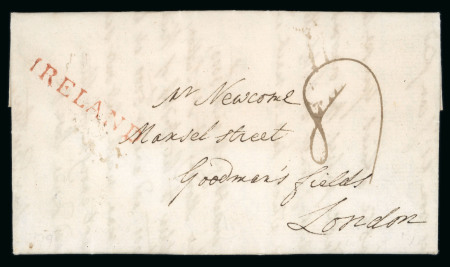 IRELAND
Mr Newcome
Mansel street
Goodman's fields
London
8